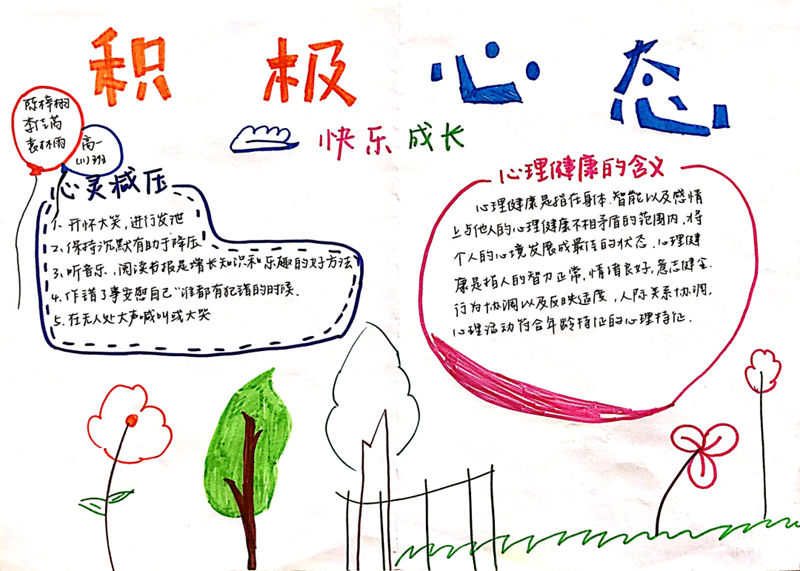 积极心态
快乐成长
陈梓栩
李佳芮
袁林雨
高一
(1)班
心灵减压
1、开怀大笑,进行发泄
2、保持沉默有助于降压
3、听音乐、阅读书报是增长知识和乐趣的好方法
4、作错了事安慰自己“谁都有犯错的时候.
5、在无人处大声喊叫或大笑
心理健康的含义
心理健康是指在身体、智能以及感情
上与他人的心理健康不相矛盾的范围内,将
个人的心境发展成最佳的状态.心理健
康是指人的智力正常,情绪良好,意志健全.
行为协调以及反映适度,人际关系协调,
心理活动符合年龄特征的心理特征.